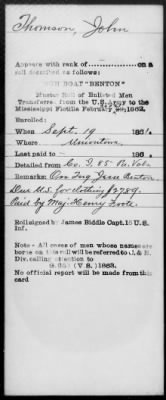 Thomson, John
Appears with rank of on a
roll described as follows:
GUN BOAT "BENTON"
Muster Roll of Enlisted Men
Transferred from the U.S. Army to the
Mississippi Flotilla February 1862.
Enrolled:
When Sept. 19 186 .
Where Uniontown
Last paid to 186 .
Detailed from Co. I. 85 Pa. Vols
Remarks:
Due U.S. for clothing $27.89.
Paid by Maj. Henry Foote.
Roll signed by James Biddle Capt. 15 U.S.
Inf.
Note - All cases of men whose names are
borne on this roll will be referred to J. & E.
Div. calling attention to
(V S.) 1863.
No official report will be made from this
card